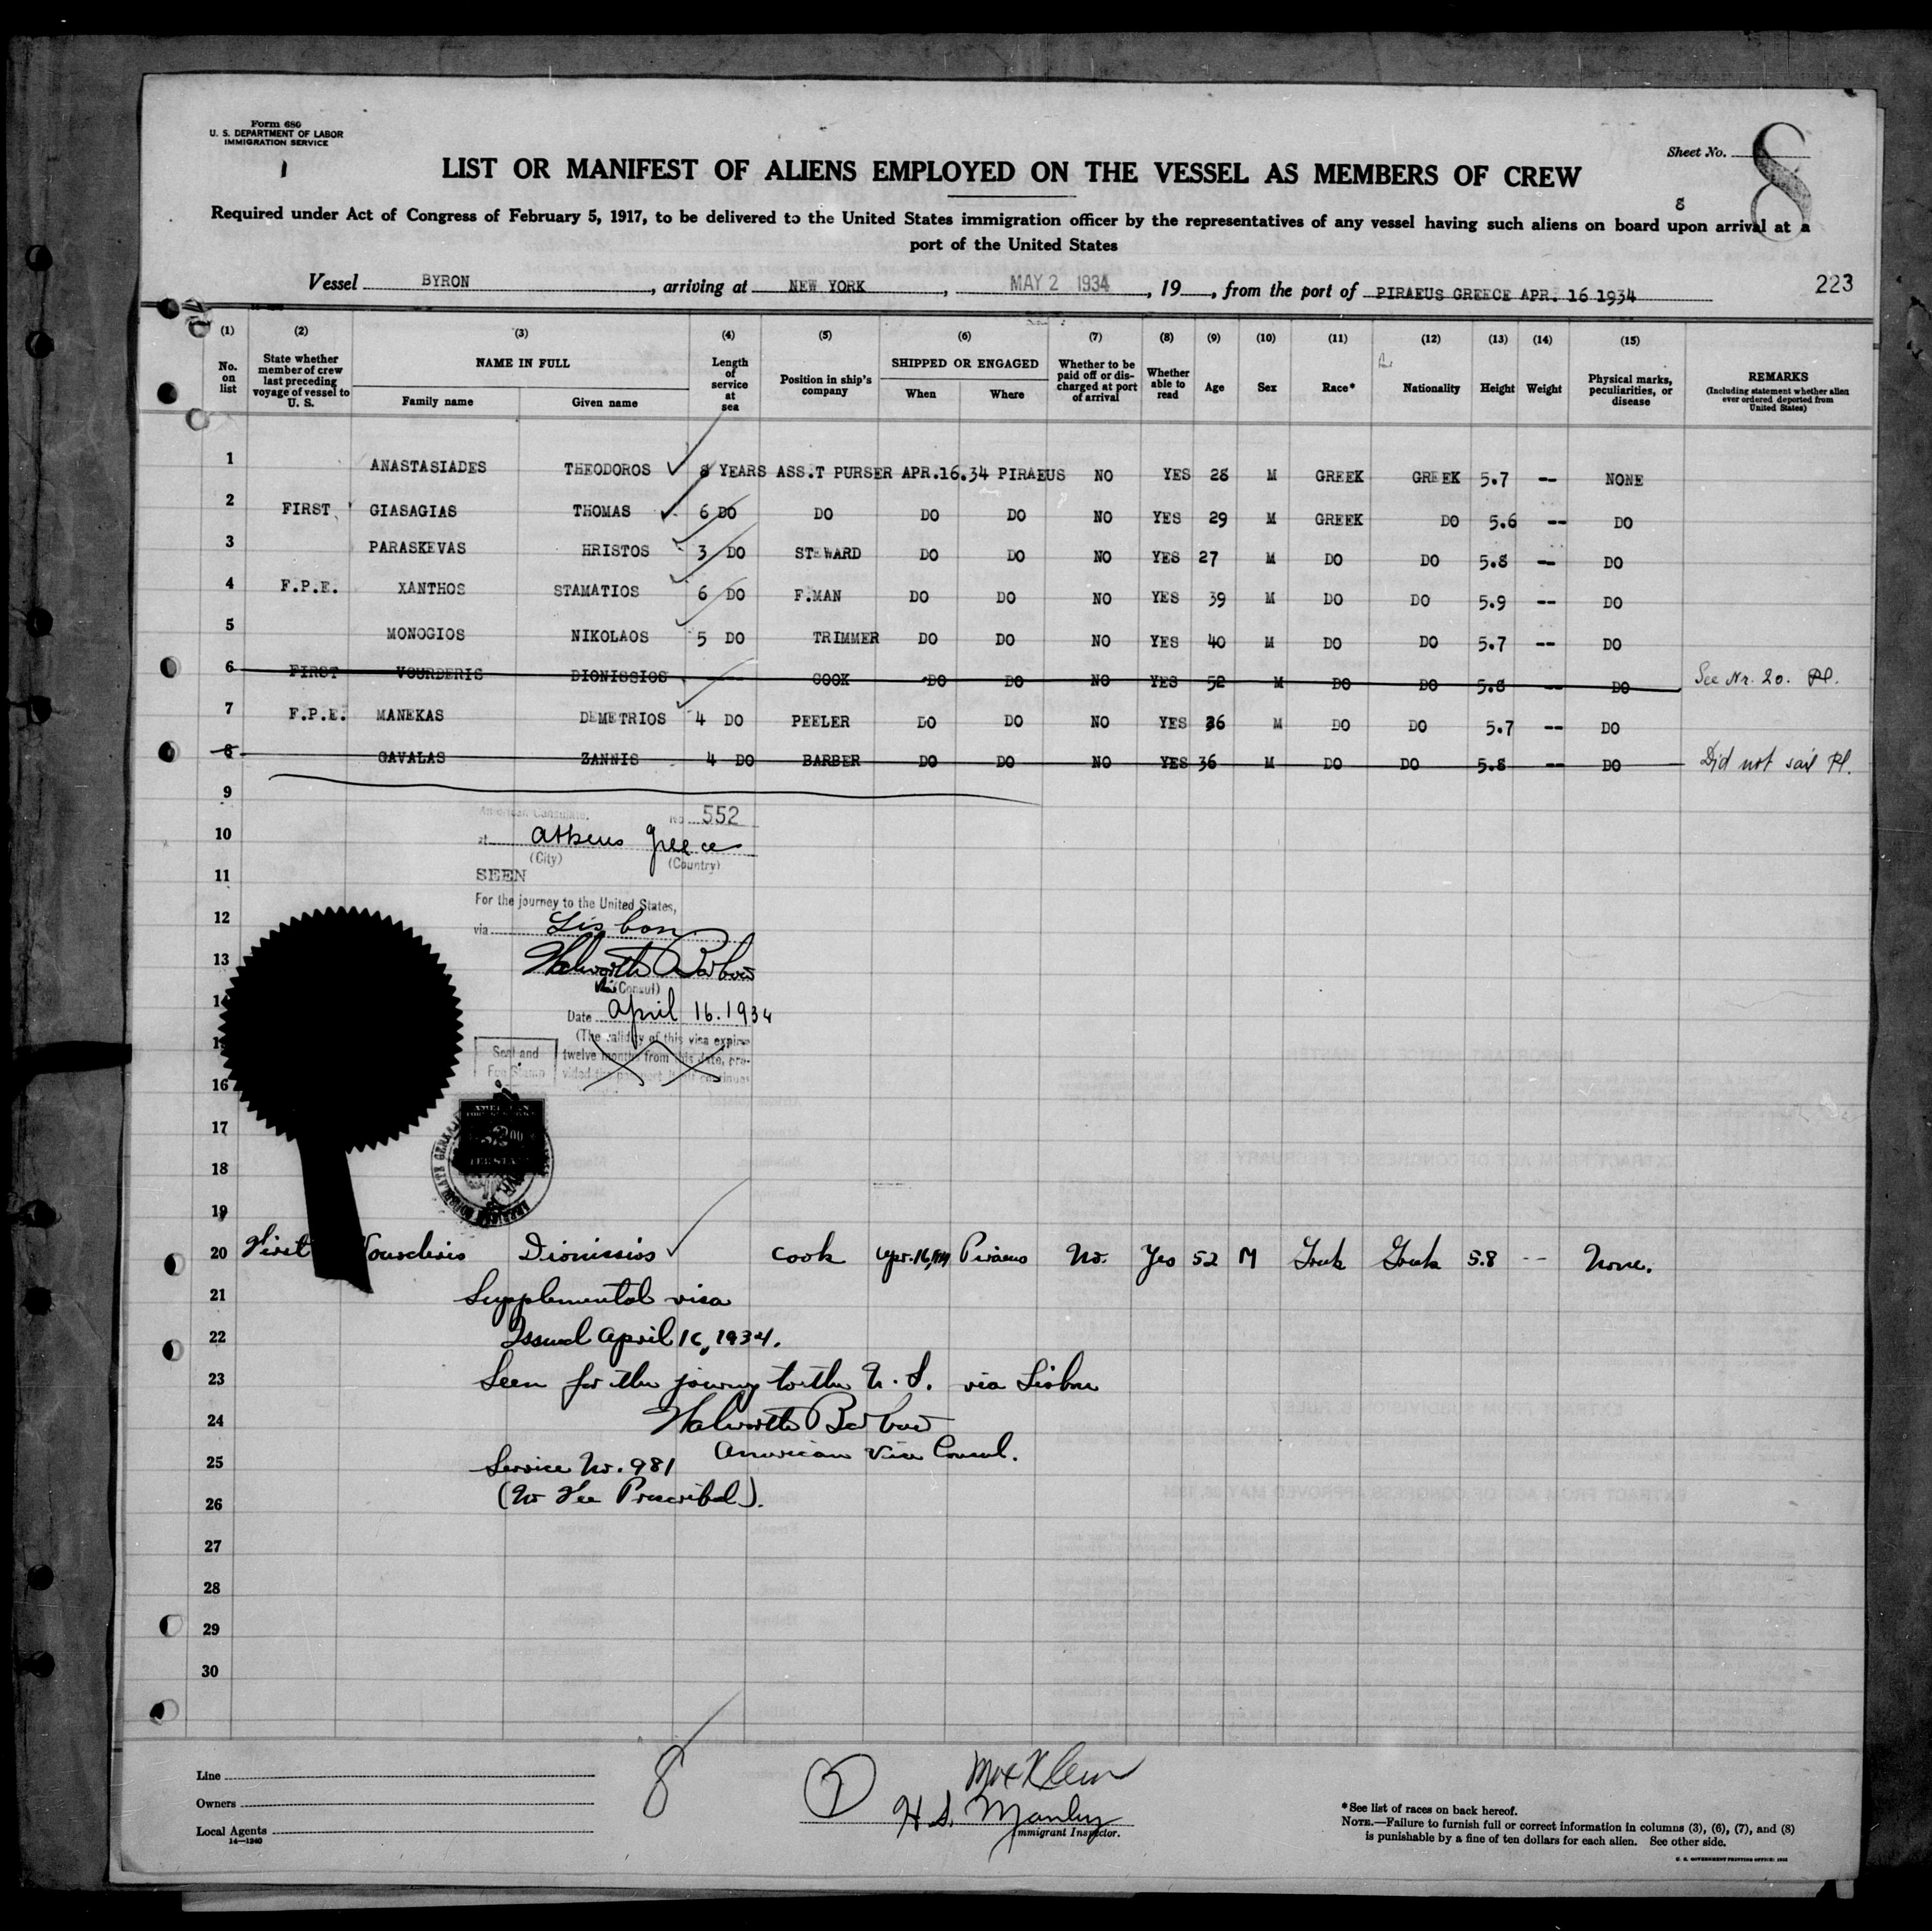 Form 680
U. S. DEPARTMENT OF LABOR
IMMIGRATION SERVICE
1
Sheet No. 8
8
LIST OR MANIFEST OF ALIENS EMPLOYED ON THE VESSEL AS MEMBERS OF CREW
Required under Act of Congress of February 5, 1917, to be delivered to the United States immigration officer by the representatives of any vessel having such aliens on board upon arrival at a
port of the United States
Vessel BYRON, arriving at NEW YORK, MAY 2 1934, 19, from the port of PIRAEUS GREECE APR. 16 1934
223
(1) (2) (3) (4) (5) (6) (7) (8) (9) (10) (11) (12) (13) (14) (15)
No. on list
State whether member of crew last preceding voyage of vessel to U. S.
NAME IN FULL
Family name
Given name
Length of service at sea
Position in ship's company
SHIPPED OR ENGAGED
When
Where
Whether to be paid off or discharged at port of arrival
Whether able to read
Age
Sex
Race*
Nationality
Height
Weight
Physical marks, peculiarities, or disease
REMARKS
(Including statement whether alien ever ordered deported from United States)
1 ANASTASIADES THEODOROS 8 YEARS ASS.T PURSER APR.16.34 PIRAEUS NO YES 28 M GREEK GREEK 5.7 -- NONE
2 FIRST GIASAGIAS THOMAS 6 DO DO DO DO NO YES 29 M GREEK DO 5.6 -- DO
3 PARASKEVAS HRISTOS 3 DO STEWARD DO DO NO YES 27 M DO DO 5.8 -- DO
4 F.P.E. XANTHOS STAMATIOS 6 DO F.MAN DO DO NO YES 39 M DO DO 5.9 -- DO
5 MONOGIOS NIKOLAOS 5 DO TRIMMER DO DO NO YES 40 M DO DO 5.7 -- DO
6 FIRST VOURDERIS DIONISSIOS COOK DO DO NO YES 52 M DO DO 5.8 -- DO See Nr. 20. Pl.
7 F.P.E. MANEKAS DEMETRIOS 4 DO PEELER DO DO NO YES 36 M DO DO 5.7 -- DO
8 GAVALAS ZANNIS 4 DO BARBER DO DO NO YES 36 M DO DO 5.8 -- DO Did not sail Pl.
9
American Consulate. No 552
10 at Athens Greece
(City) (Country)
11 SEEN
For the journey to the United States,
12 via Lisbon
13 Walworth Barbour
Vice (Consul)
14
Date April 16. 1934
15 (The validity of this visa expires
Seal and twelve months from this date, pro-
Fee Stamp vided the passport is continues
16
17
18
19
20 First Vourderis Dionissios cook Apr. 16, 1934 Piraeus No. Yes 52 M Greek Greek 5.8 -- None.
21 Supplemental visa
22 Issued April 16, 1934.
23 Seen for the journey to the U. S. via Lisbon
24 Walworth Barbour
American Vice Consul.
25 Service No. 981
26 (No Fee Prescribed).
27
28
29
30
Line
Owners
Local Agents
14—1240
8
7
Max Klein
H. S. Manley
Immigrant Inspector.
*See list of races on back hereof.
NOTE.—Failure to furnish full or correct information in columns (3), (6), (7), and (8)
is punishable by a fine of ten dollars for each alien. See other side.